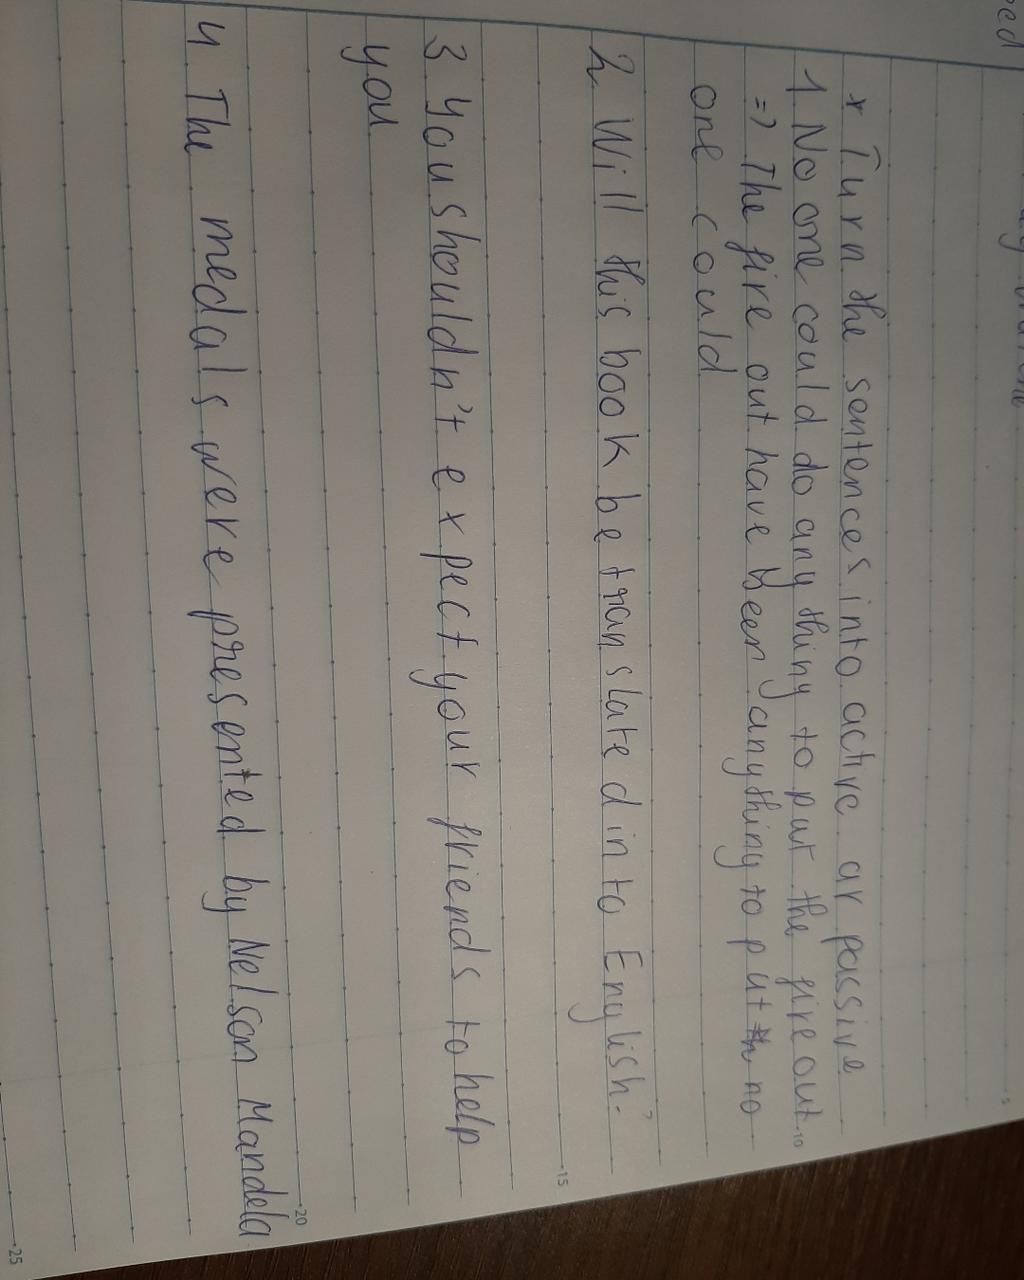 * Turn the sentences into active or passive
1 No one could do any thing to put the fire out
=> The fire out have been anything to put no
one could
2. Will this book be translated into English?
3 You shouldn't expect your friends to help
you
4 The medals were presented by Nelson Mandela